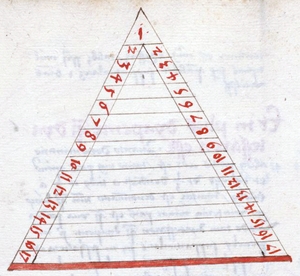 1
2 2
3 3
4 4
5 5
6 6
7 7
8 8
9 9
10 10
11 11
12 12
13 13
14 14
15 15
16 16
17 17